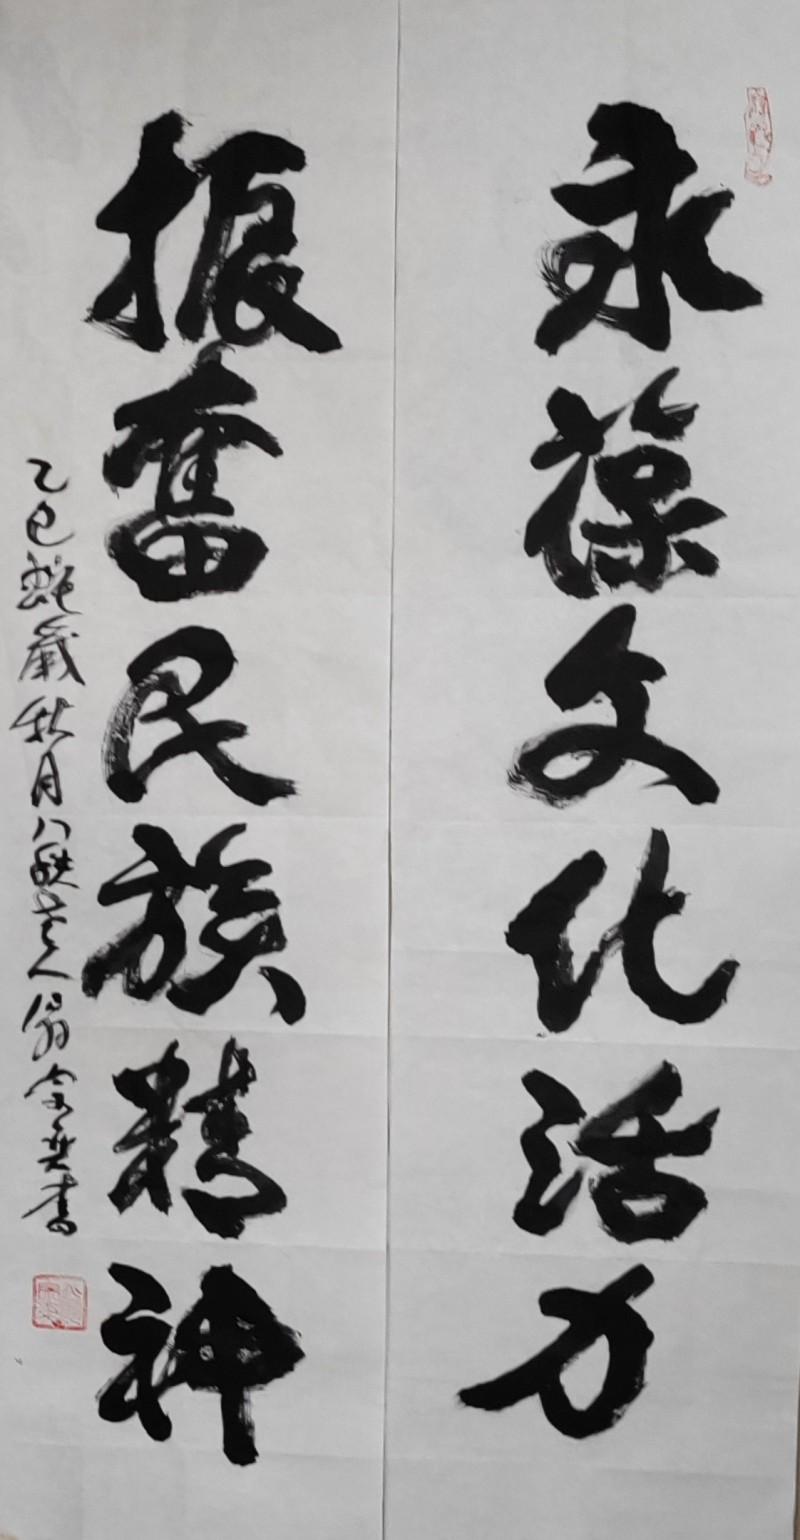 永葆文化活力
振奋民族精神
乙巳蛇歲秋月八秩老人翁宗奕書